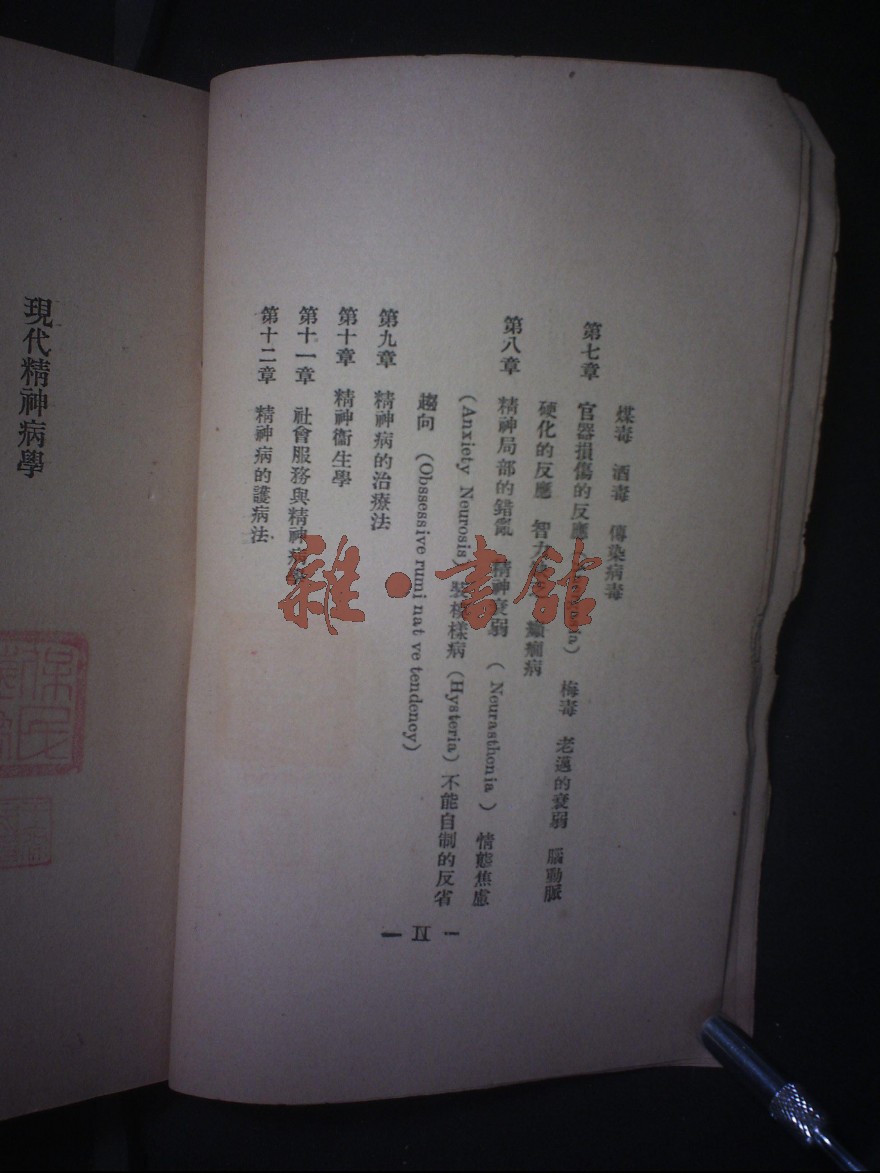 煤毒 酒毒 傳染病毒
第七章 官器損傷的反應 梅毒 老邁的衰弱 腦動脈
硬化的反應 智力 癲癇病
第八章 精神局部的錯亂 精神衰弱 (Neurasthenia) 情態焦慮
(Anxiety Neurosis) 裝模樣病 (Hysteria) 不能自制的反省
趨向 (Obssessive rumi nat ve tendency)
第九章 精神病的治療法
第十章 精神衞生學
第十一章 社會服務與精神病學
第十二章 精神病的護病法
— II —
現代精神病學
雜·書舘